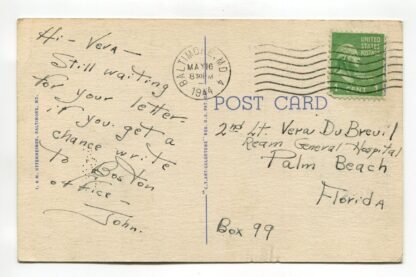 Hi - Vera -
Still waiting
for your letter.
if you get a
chance write
to Boston
office -
John.
BALTIMORE, MD.
MAY 16
8 30 PM
1944
4
1
UNITED STATES
POSTAGE
1 CENT 1
POST CARD
2nd Lt. Vera DuBreuil
Ream General Hospital
Palm Beach
Florida
Box 99
I. & M. OTTENHEIMER, BALTIMORE, MD.